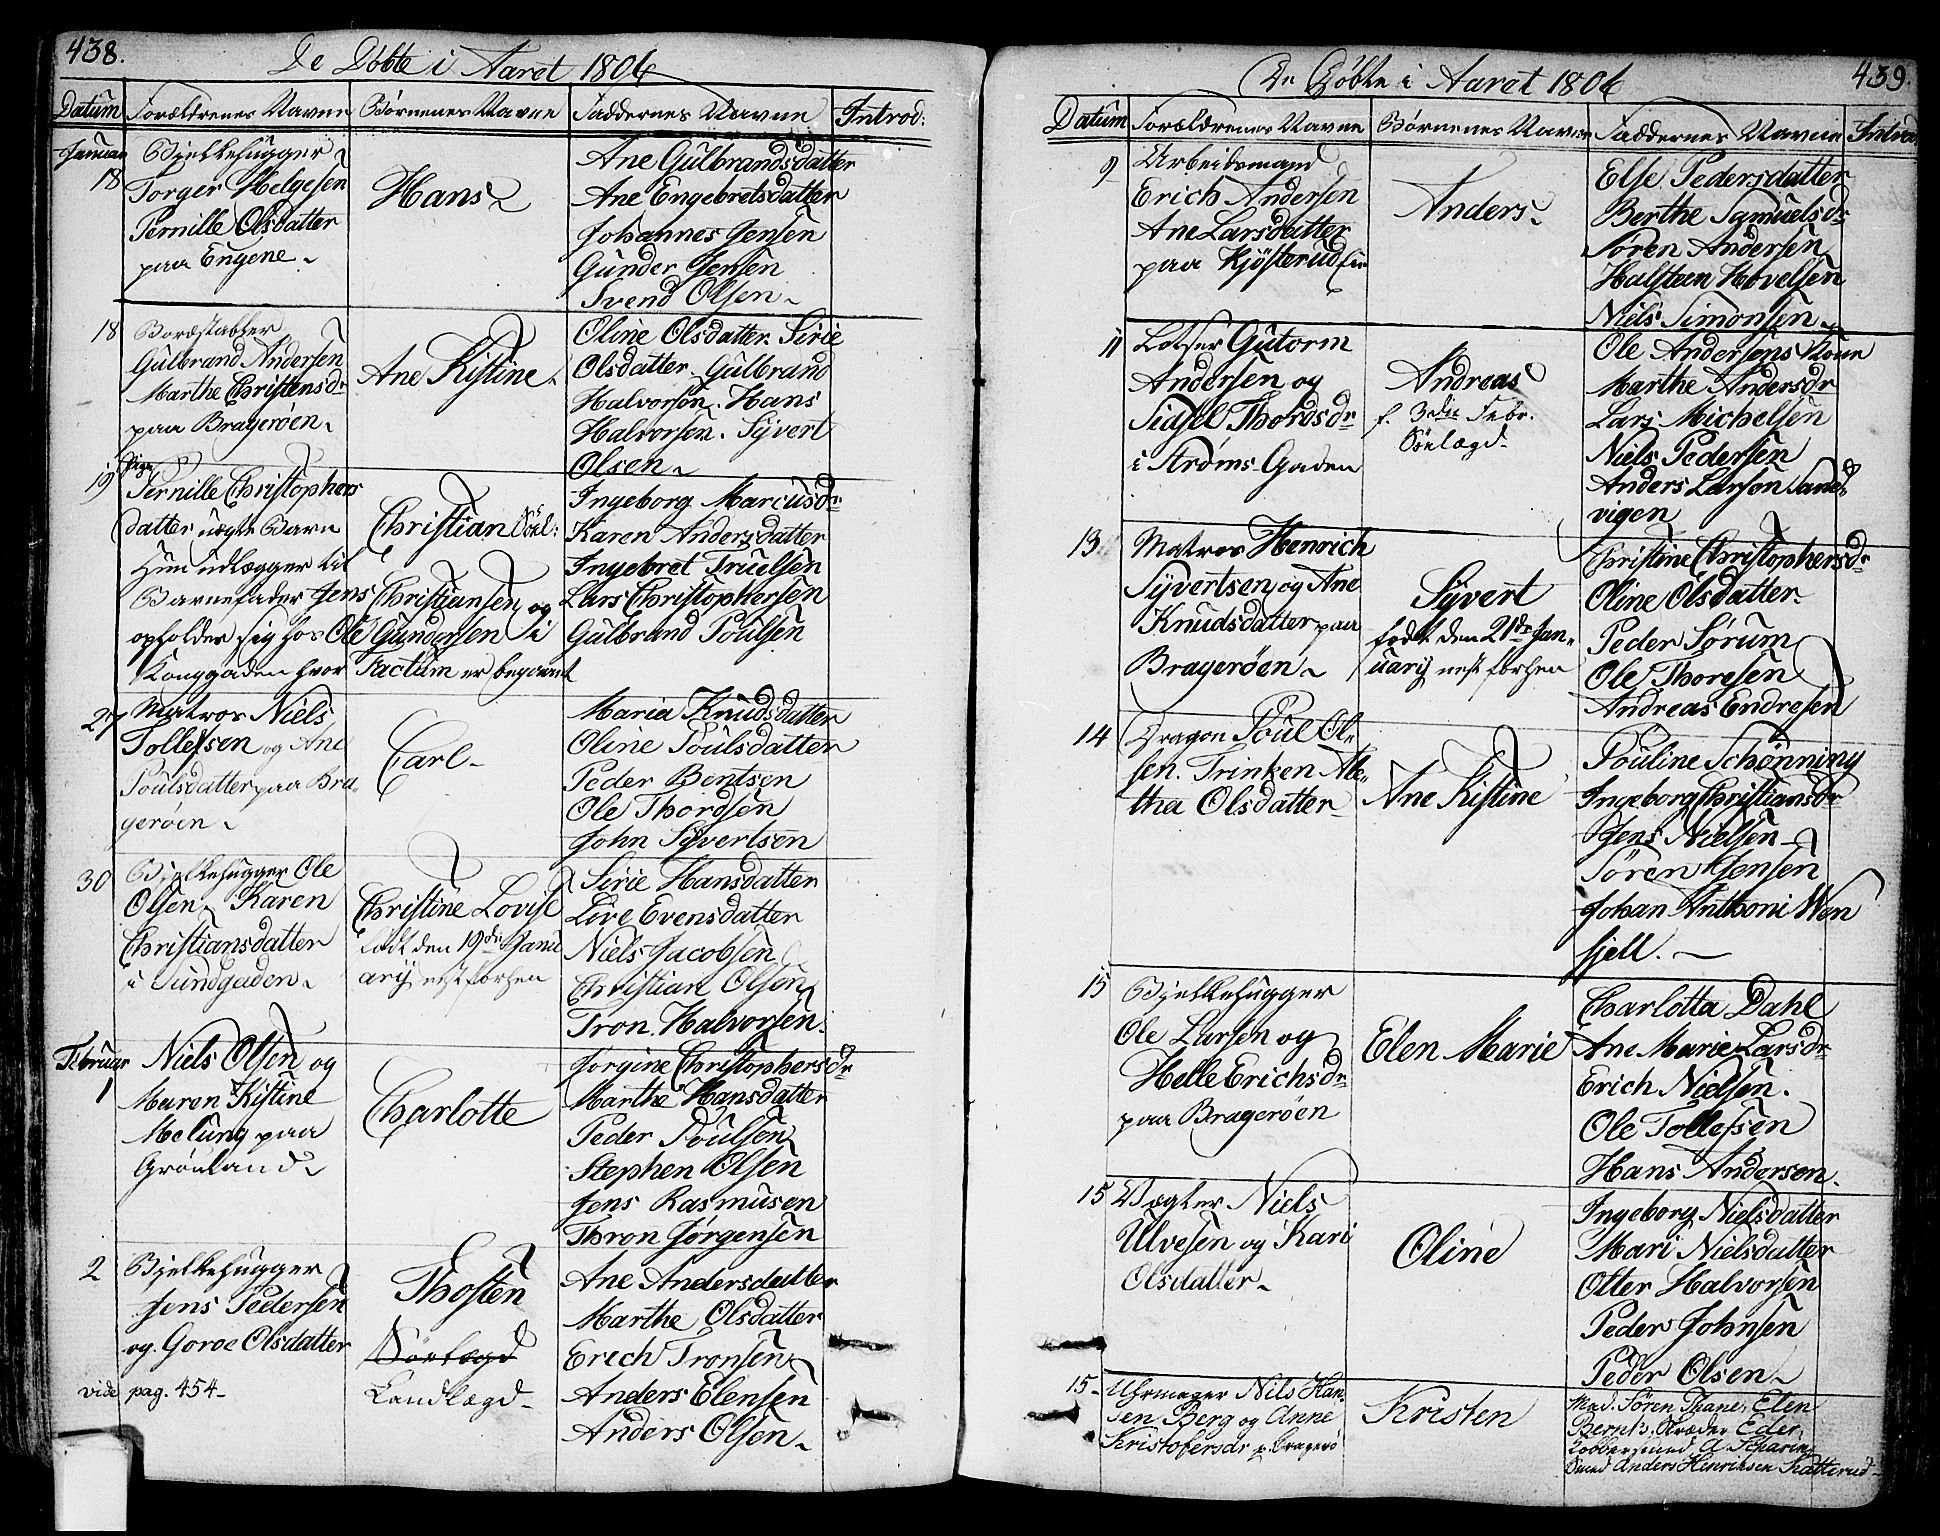 438.
De Døbte i Aaret 1806
Datum Forældrenes Navne Børnenes Navne Faddernes Navne Introd:
Januar
18
Bjelkehugger
Torger Helgesen
Pernille Olsdatter
paa Engene
Hans
Ane Gulbrandsdatter
Ane Engebretsdatter
Johannes Jensen
Gunder Jensen
Svend Olsen
18
Bordstabler
Gulbrand Andersen
Marthe Christensdr
paa Bragerøen
Ane Kistine
Oline Olsdatter. Sirie
Olsdatter. Gulbrand
Halvorson. Hans
Halvorsen. Syvert
Olsen
19
Pige
Pernille Christophers
datter uægte Barn
Hun udlægger til
Barnefader Jens Christiansen og
opholder sig hos Ole Gundersen i
Konggaden hvor Factum er begaaet
Christian
Ingeborg Marcusdr
Karen Andersdatter
Ingebret Truelsen
Lars Christophersen
Gulbrand Poulsen
27
Matros Niels
Tollefsen og Ane
Poulsdatter paa Bra-
gerøen
Carl
Maria Knudsdatter
Oline Poulsdatter
Peder Bentsen
Ole Thordsen
John Syvertsen
30
Bjelkehugger Ole
Olsen Karen
Christiansdatter
i Sundgaden
Christine Lovise
født den 19de Janu
arij nest forhen
Sirie Hansdatter
Live Evensdatter
Niels Jacobsen
Christian Olsen
Tron Halvorsen
Februar
1
Niels Olsen og
Maren Kistine
Melung paa
Grønland
Charlotte
Jorgine Christophersdr
Marthe Hansdatter
Peder Poulsen
Stephen Olsen
Jens Rasmusen
Thron Jørgensen
2
Bjelkehugger
Jens Pedersen
og Goroe Olsdatter
vide pag. 454
Thosten
Søelægd
Landlægd
Ane Andersdatter
Marthe Olsdatter
Erich Tronsen
Anders Elensen
Anders Olsen
439.
De Døbte i Aaret 1806
Datum Forældrenes Navne Børnenes Navne Faddernes Navne Introd
9
Arbeidsmand
Erich Andersen
Ane Larsdatter
paa Kjøsterud
Anders
Else Pedersdatter
Berthe Samuelsdr
Søren Andersen
Halsteen Hovelsen
Niels Simonsen
11
Lotser Gutorm
Andersen og
Sidsel Thordsdr
i Strøms-Gaden
Andreas
f. 3die Febr.
Søelægd
Ole Andersens Kone
Marthe Andersdr
Lars Michelsen
Niels Pedersen
Anders Larson Sand-
vigen
13
Matros Henrich
Syvertsen og Ane
Knudsdatter paa
Bragerøen
Syvert
født den 21de Jan-
uarij nest forhen
Christine Christophersdr
Oline Olsdatter
Peder Sørum
Ole Thoresen
Andreas Endresen
14
Dragon Poul Ol-
sen. Trinken Ale-
tha Olsdatter
Ane Kistine
Pouline Schønning
Ingeborg Christiansdr
Jens Nielsen
Søren Jensen
Johan Anthoni Wen
sjell.
15
Bjelkehugger
Ole Larsen og
Helle Erichsdr
paa Bragerøen
Elen Marie
Charlotta Dahl
Ane Marie Larsdr
Erich Nielsen.
Ole Tollefsen
Hans Andersen
15
Vægter Niels
Ulvesen og Kari
Olsdatter
Oline
Ingeborg Nielsdatter
Mari Nielsdatter
Otter Halvorsen
Peder Johnsen
Peder Olsen
15
Uhrmager Nils Han
sen Berg og Anne
Kristofersdr p. Bragerø
Kristen
Mad. Søren Thane, Elen
Bernts, Eder,
Kobbersmed A. Scharin
Smed Anders Henriksen Katterud